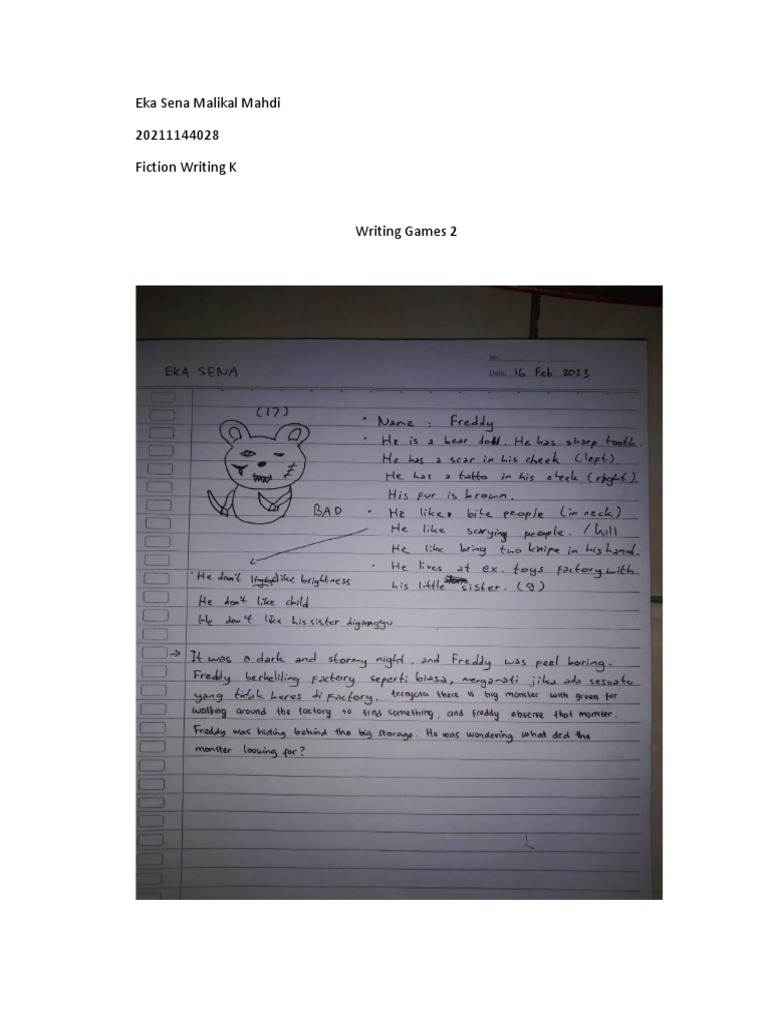 Eka Sena Malikal Mahdi
20211144028
Fiction Writing K
Writing Games 2
No.
EKA SENA
Date: 16 Feb 2023
(17)
• Name : Freddy
• He is a bear doll. He has sharp tooth.
He has a scar in his cheek (left).
He has a tatto in his cheek (right).
His fur is brown.
BAD
• He likes bite people (in neck)
He like scarying people. / hill
He like bring two knipe in his hand.
• He lives at ex. toys factory with
his little sister. (9)
• He don't like brightness
He don't like child
He don't like his sister diganggu
→ It was a dark and stormy night, and Freddy was feel boring.
Freddy berkeliling factory seperti biasa, mengamati jika ada sesuatu
yang tidak beres di factory. ternyata there is big monster with green fur
walking around the factory to find something, and freddy observe that monster.
Freddy was hiding behind the big storage. He was wondering what did the
monster looking for?